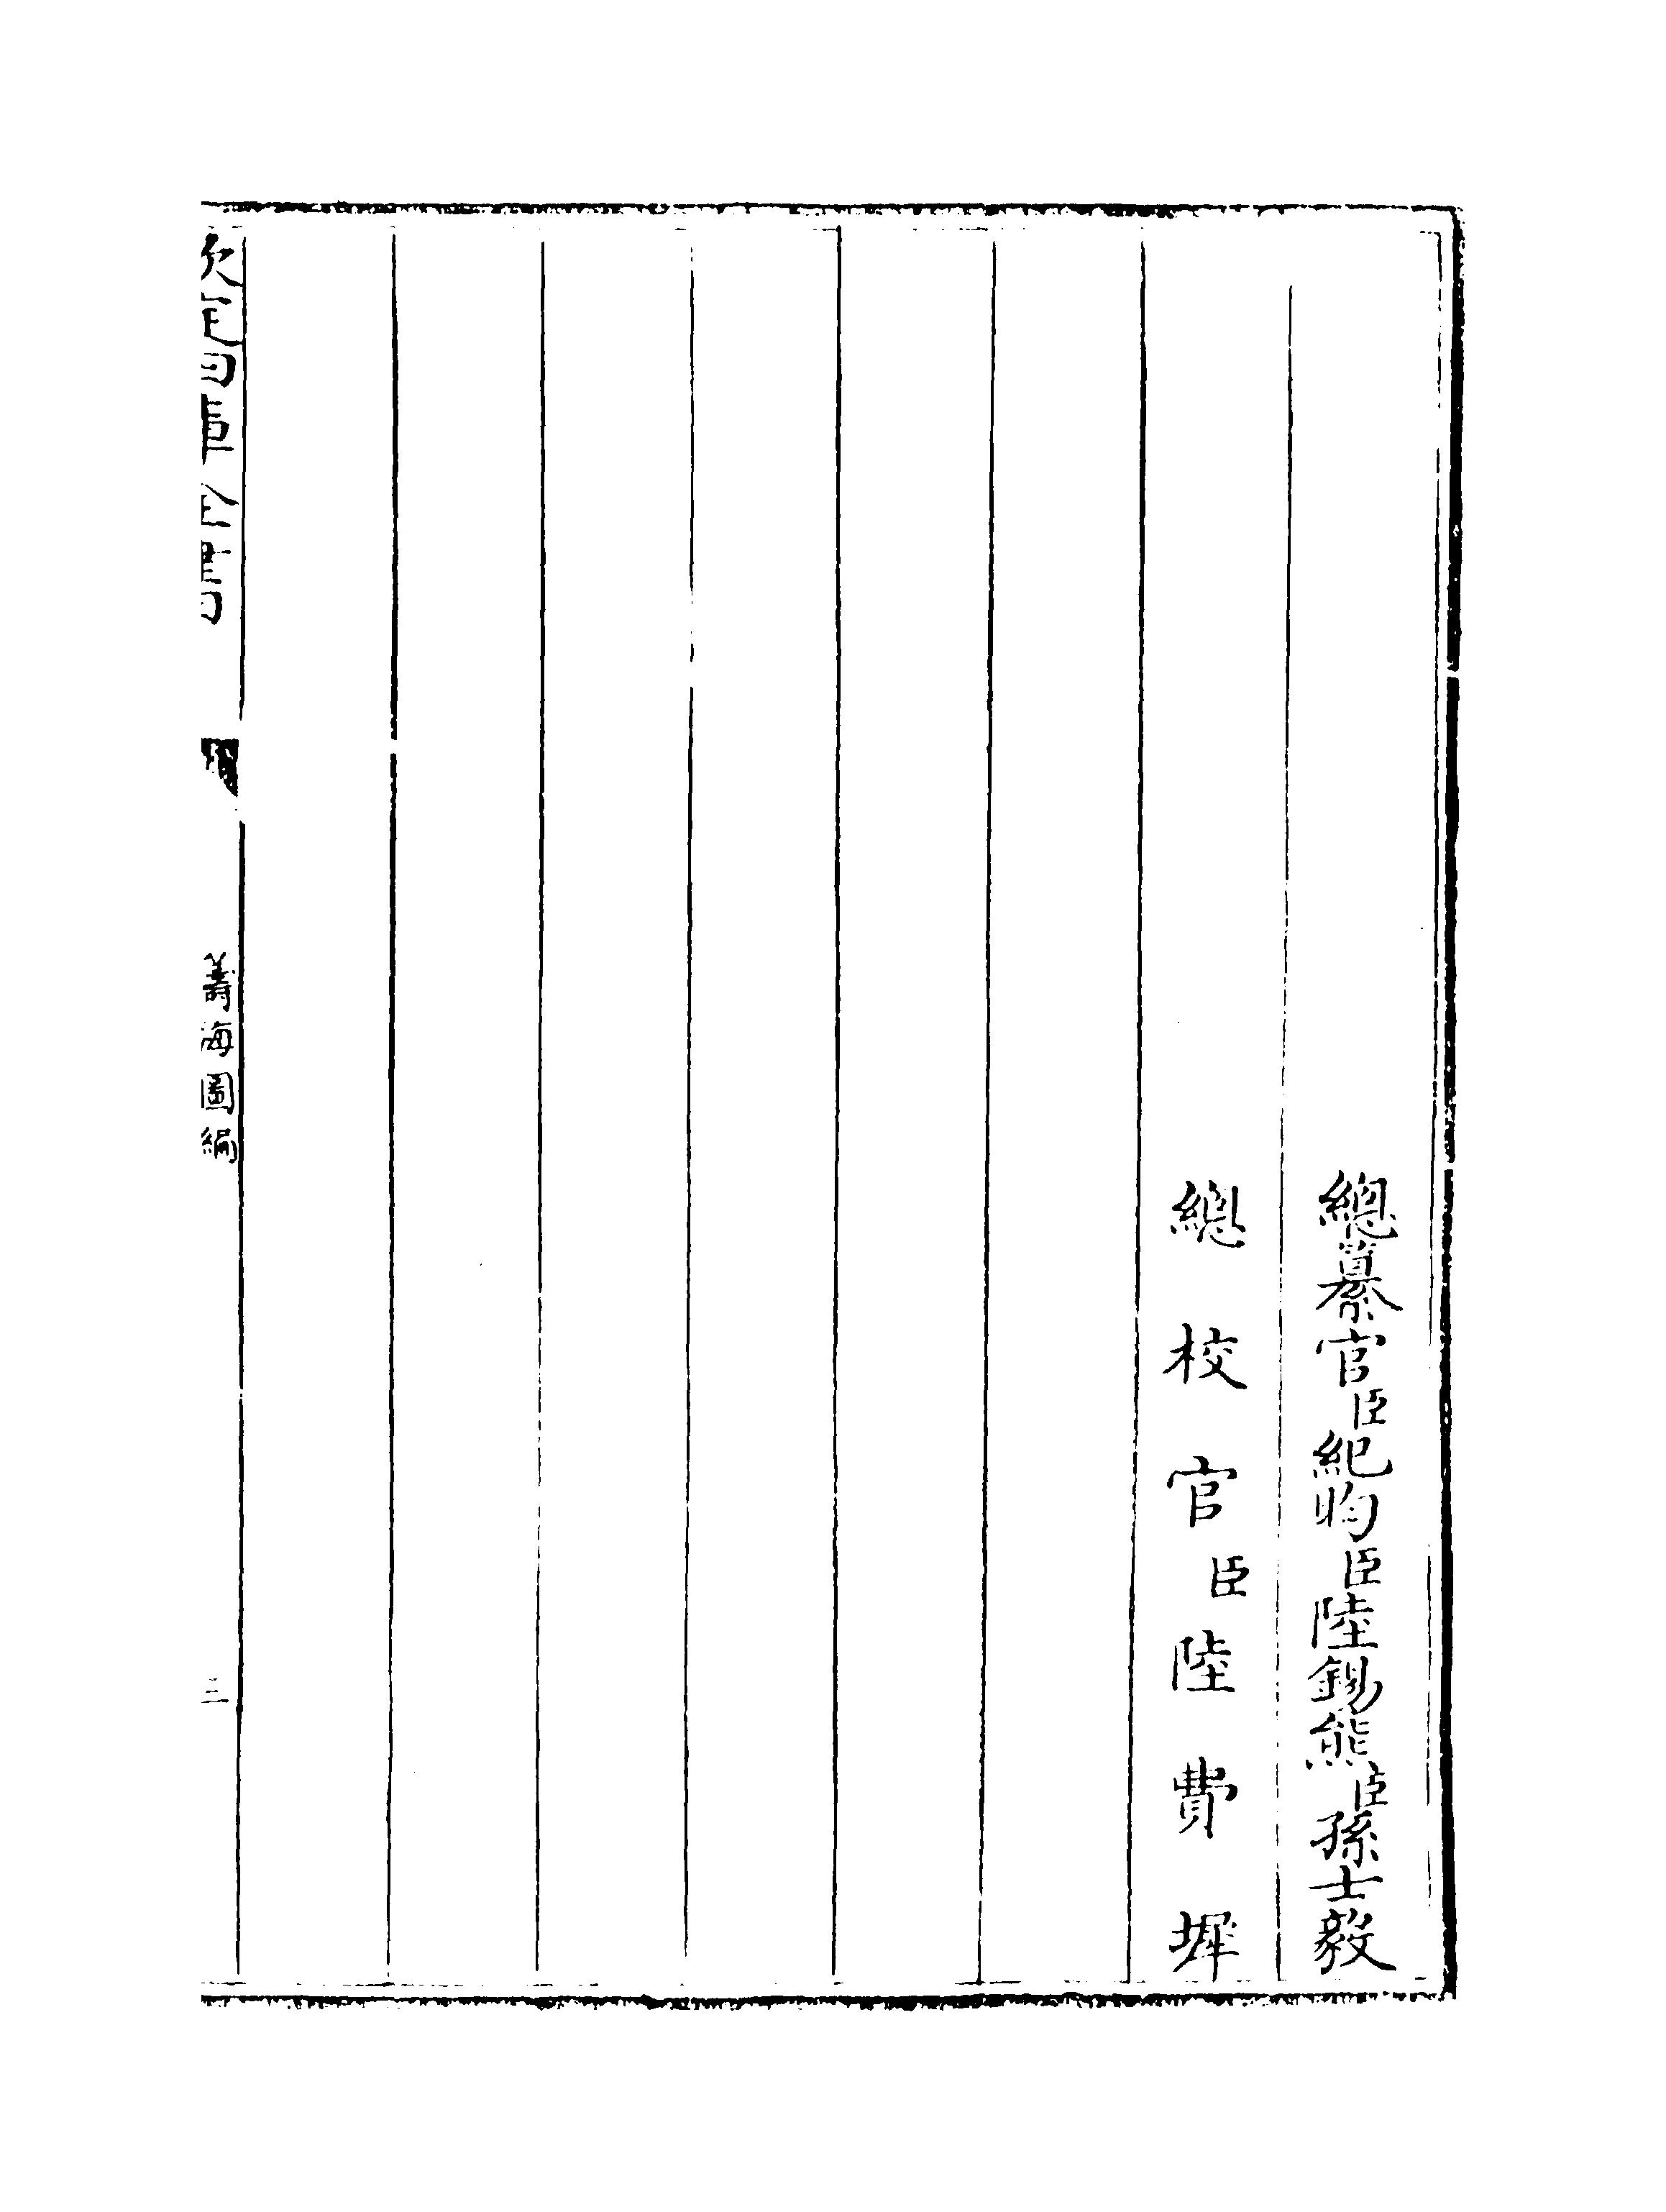 總纂官臣紀昀臣陸錫熊臣孫士毅
總校官臣陸費墀
欽定四庫全書
籌海圖編
三